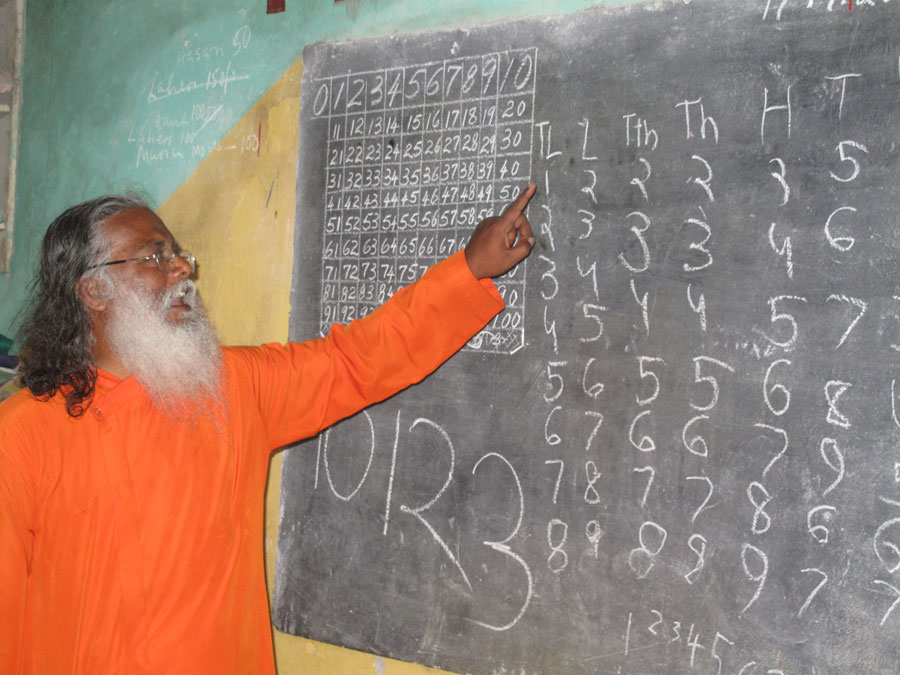 Assan 50
Laher 150/-
100
Laher 100
Masin moses - 100
0 1 2 3 4 5 6 7 8 9 10
11 12 13 14 15 16 17 18 19 20
21 22 23 24 25 26 27 28 29 30
31 32 33 34 35 36 37 38 39 40
41 42 43 44 45 46 47 48 49 50
51 52 53 54 55 56 57 58 59
61 62 63 64 65 66 67
71 72 73 74 75
81 82 83 84
91 92 100
TL L Tth Th H T
1 2 2 2 3 5
2 3 3 3 4 6
3 4 4 4 5 7
4 5
5 6 5 5 6 8
6 7 6 6 7 9
7 8 7 7 8 6
8 9 8 8 9 7
10 12 3
1 2 3 4 5